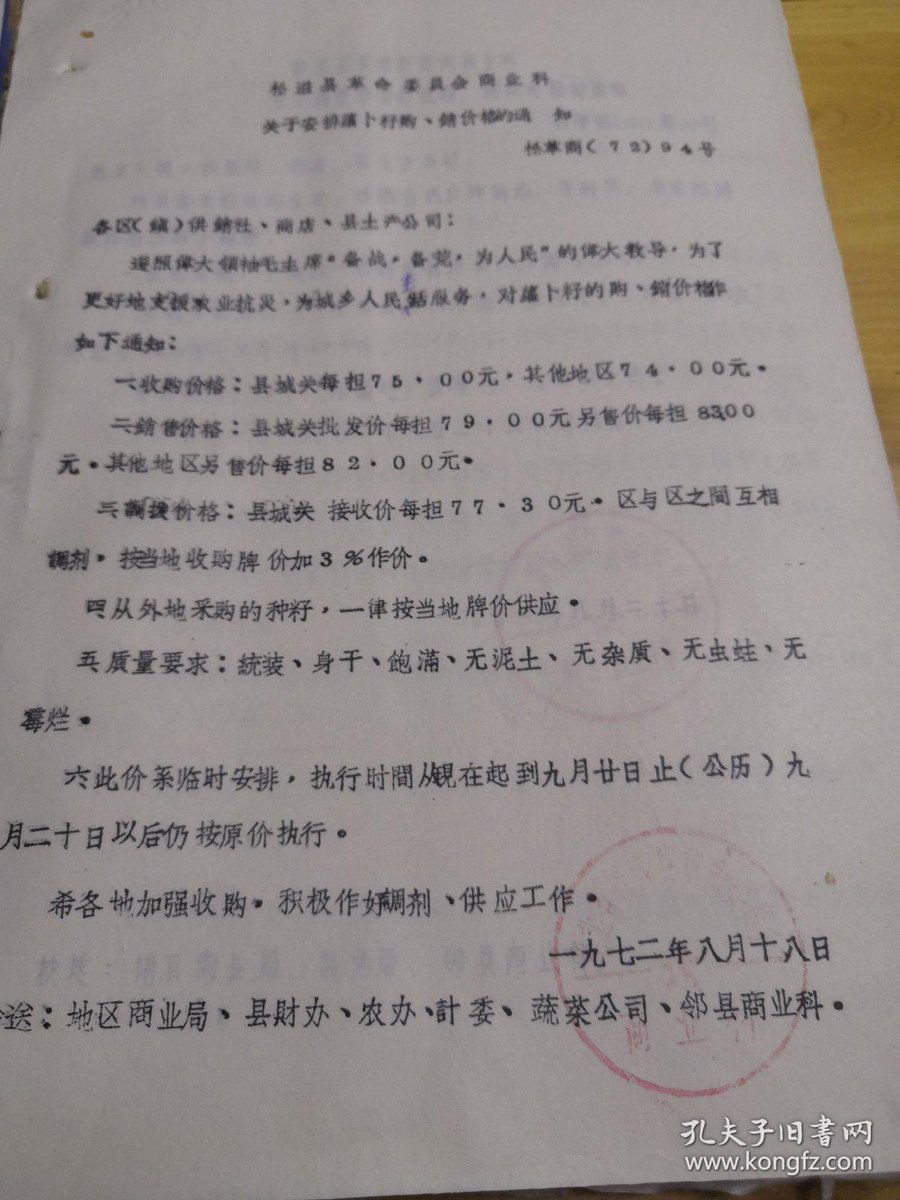 松滋县革命委員会商业科
关于安排蘿卜籽购、銷价格的通 知
松革商(72)94号
各区(鎮)供銷社、商店、县土产公司:
遵照偉大領袖毛主席“备战,备荒,为人民”的偉大教导,为了
更好地支援农业抗災,为城乡人民生活服务,对蘿卜籽的购、銷价格作
如下通知:
一、收购价格:县城关每担75·00元,其他地区74·00元。
二銷售价格:县城关批发价每担79·00元另售价每担8300
元。其他地区另售价每担82·00元。
三調拨价格:县城关 接收价每担77·30元。区与区之間互相
調剂。按当地收购牌价加3%作价。
四从外地采购的种籽,一律按当地牌价供应。
五质量要求:統装、身干、飽滿、无泥土、无杂质、无虫蛀、无
霉烂。
六此价系临时安排,执行时間从現在起到九月廿日止(公历)九
月二十日以后仍按原价执行。
希各地加强收购。积极作好調剂、供应工作。
一九七二年八月十八日
送:地区商业局、县財办、农办、計委、蔬菜公司、邻县商业科。
商业科
孔夫子旧书网
www.kongfz.com